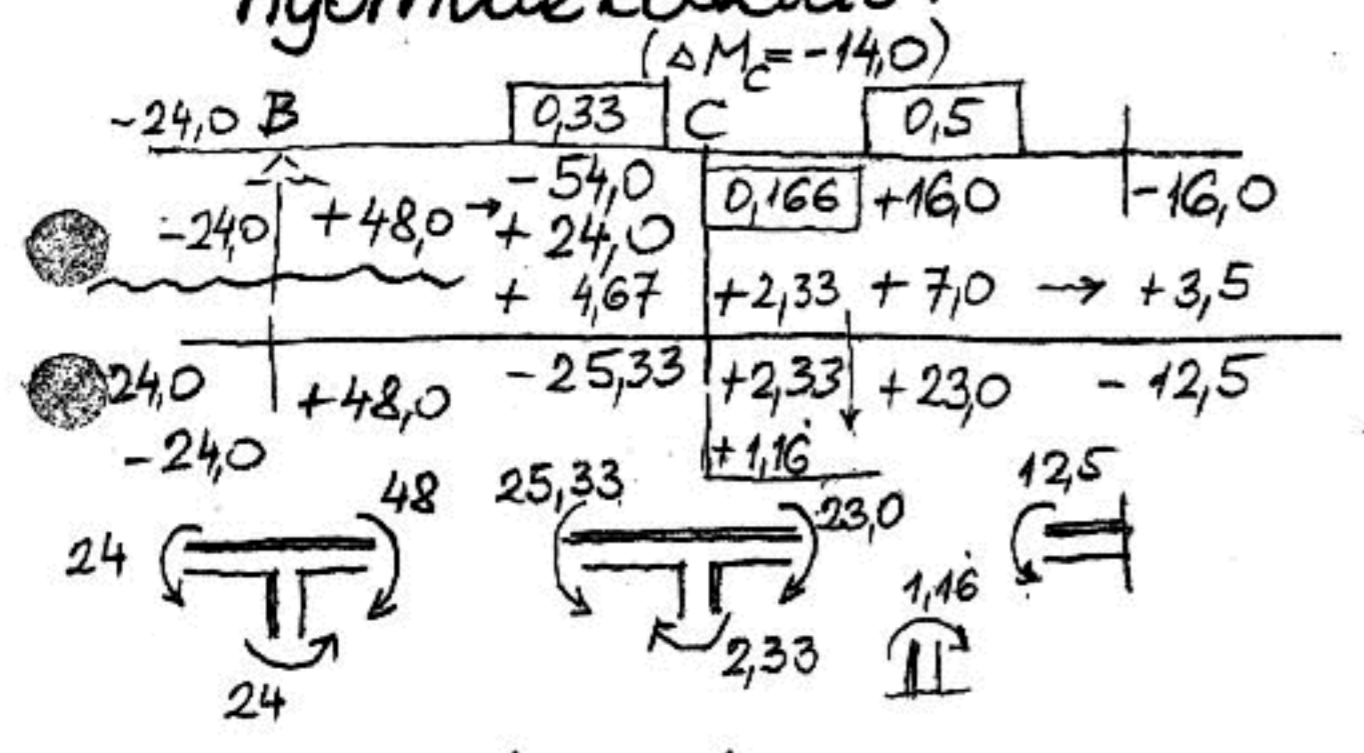 (ΔM_C = -14,0)
-24,0 B 0,33 C 0,5
-54,0 0,166 +16,0 -16,0
-24,0 +48,0 → +24,0
+ 4,67 +2,33 + 7,0 → +3,5
24,0 +48,0 -25,33 +2,33 +23,0 - 12,5
-24,0 +1,16
48 25,33 23,0 12,5
24
2,33 1,16
24